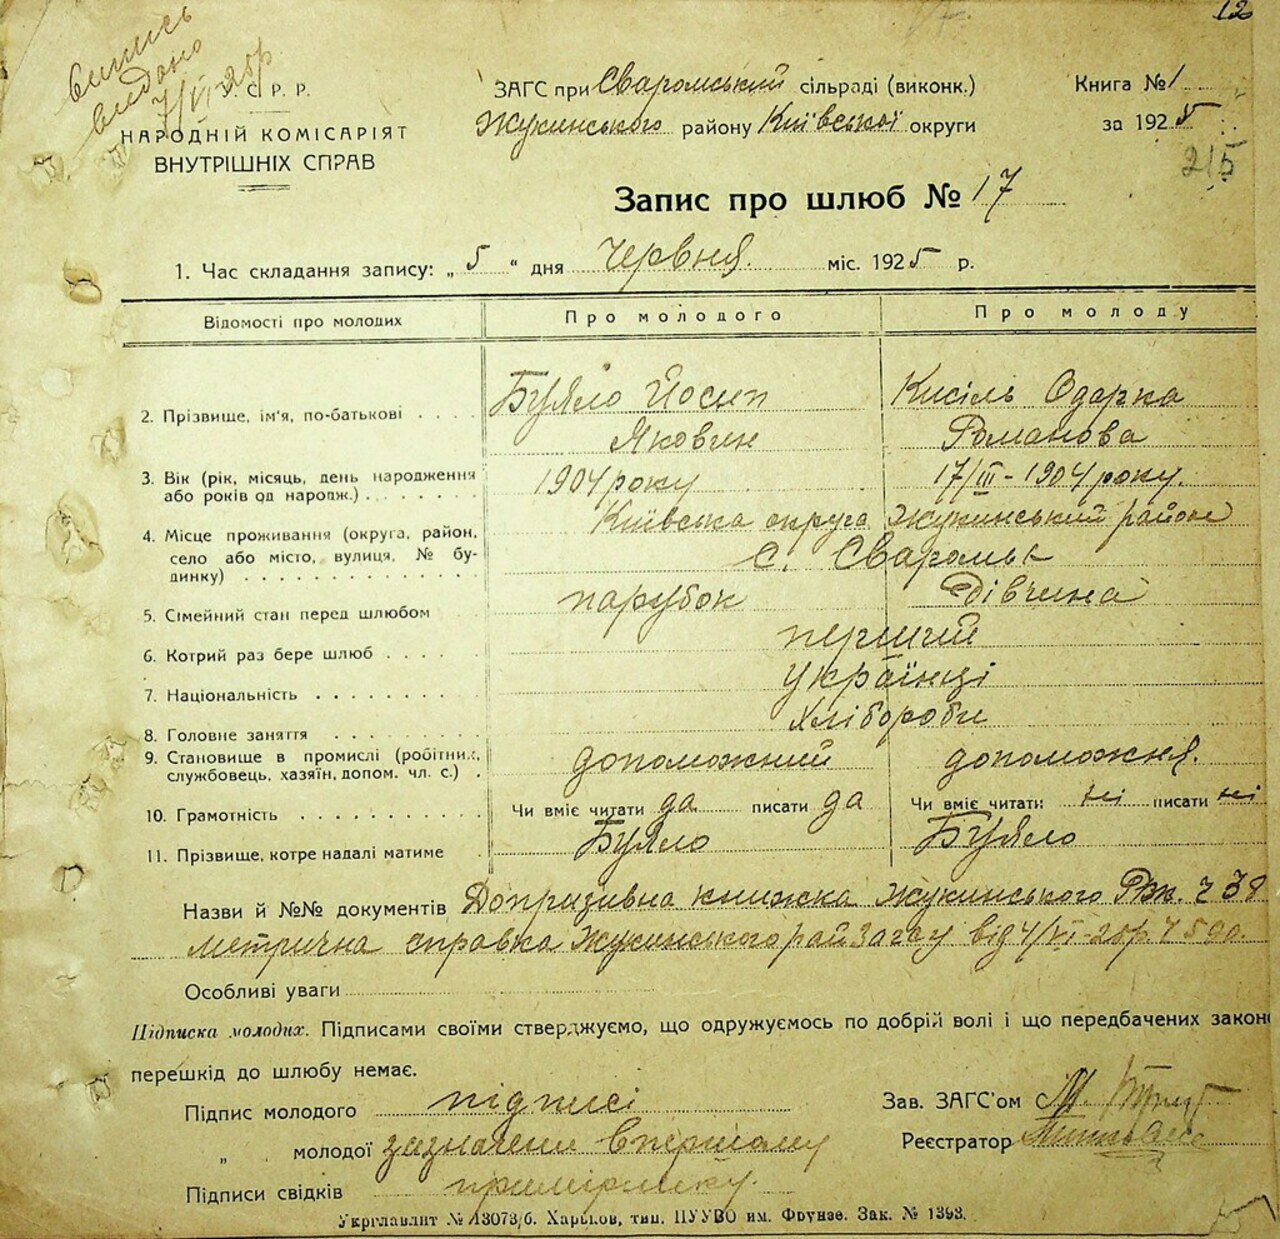 12
випись
видано
7/VI-25р
У. С. Р. Р.
НАРОДНІЙ КОМІСАРІЯТ
ВНУТРІШНІХ СПРАВ
ЗАГС при Сваромський сільраді (виконк.)
Жукинського району Київської округи
Книга № 1
за 1925
215
Запис про шлюб № 17
1. Час складання запису: „ 5 “ дня Червня міс. 1925 р.
Відомості про молодих Про молодого Про молоду
2. Прізвище, ім'я, по-батькові . . . . Буяло Йосип Кисіль Одарка
Яковин Романова
3. Вік (рік, місяць, день народження або років од народж.) . . . . . . . 1904 року 17/III-1904 року.
4. Місце проживання (округа, район, село або місто, вулиця, № будинку) . . . . . . . . . . . . . Київська округа Жукинський район
с. Сваромьє
5. Сімейний стан перед шлюбом парубок Дівчина
6. Котрий раз бере шлюб . . . . перший
7. Національність . . . . . . . українці
8. Головне заняття . . . . . . . хлібороби
9. Становище в промислі (робітник, службовець, хазяїн, допом. чл. с.) . допоможний допоможня.
10. Грамотність . . . . . . . . . . Чи вміє читати да писати да Чи вміє читати: ні писати ні
11. Прізвище, котре надалі матиме Буяло Буяло
Назви й №№ документів Допризивна книжка Жукинського ч 38
метрична справка Жукинського райЗагсу від 4/VI-25р ч 590.
Особливі уваги
Підписка молодих. Підписами своїми стверджуємо, що одружуємось по добрій волі і що передбачених законо
перешкід до шлюбу немає.
Підпис молодого підписі
„ молодої зазначени в першому
Підписи свідків примірнику.
Зав. ЗАГС'ом
Реєстратор
Укрглавліт № 13073/б. Харьков, тип. ПУУВО им. Фрунзе. Зак. № 1393.